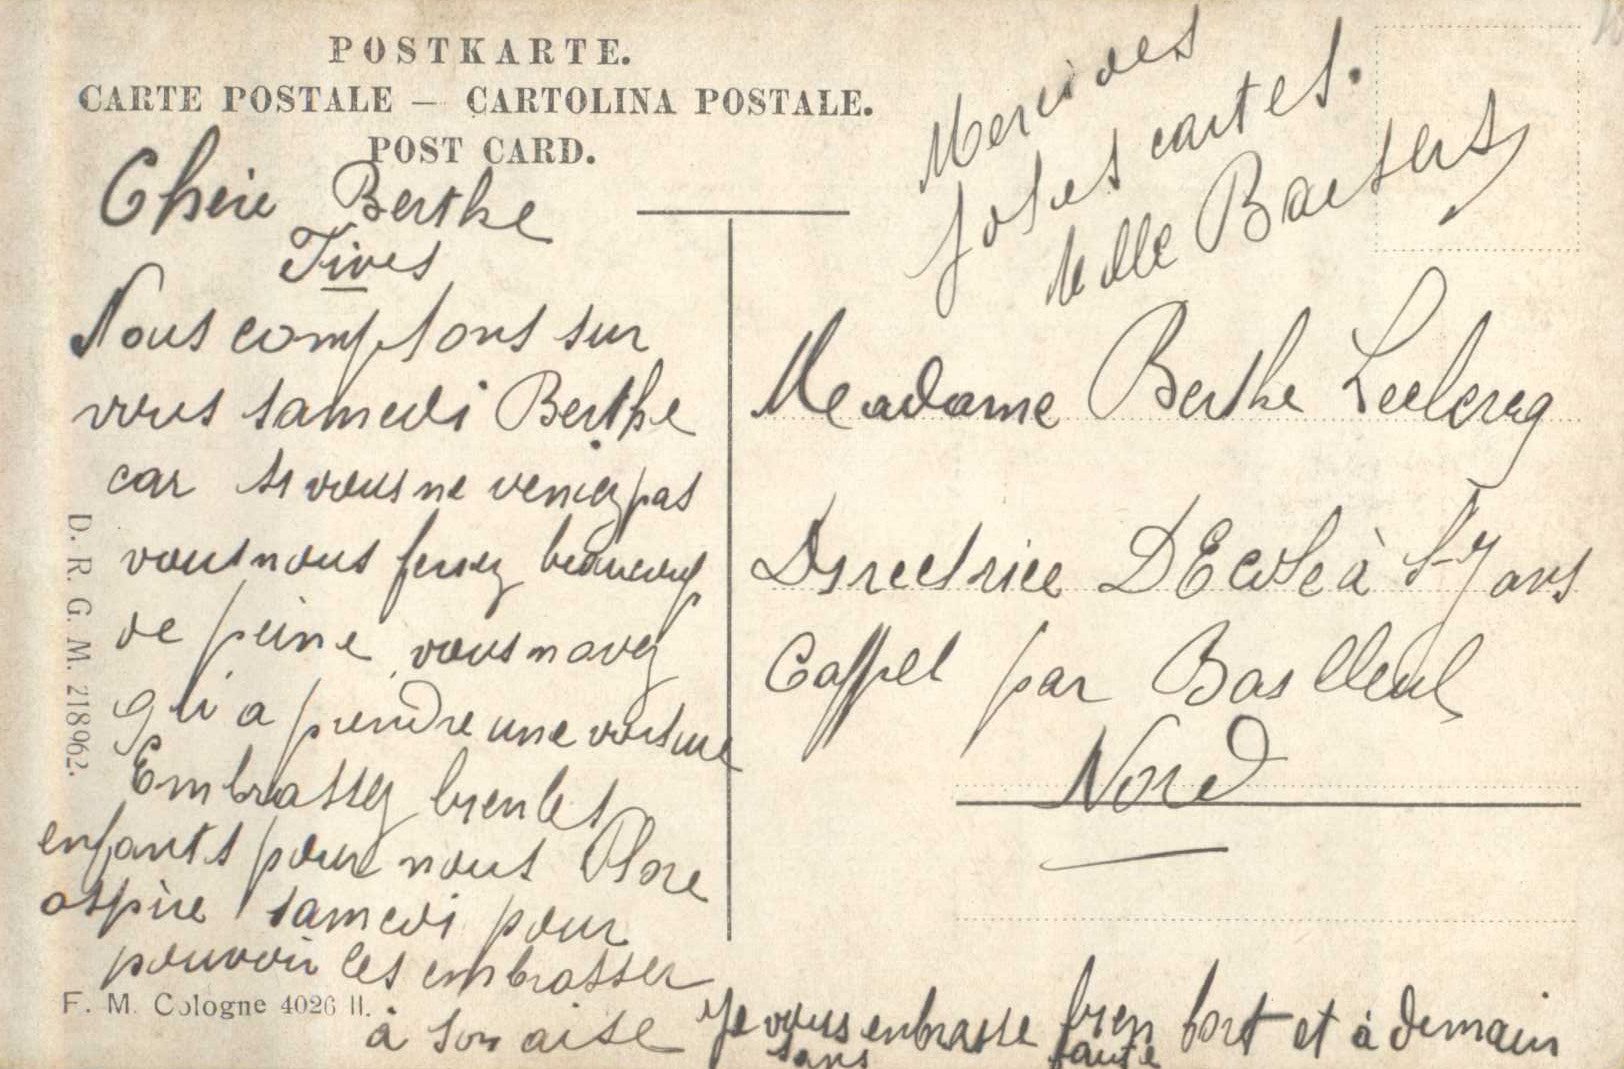 POSTKARTE.
CARTE POSTALE – CARTOLINA POSTALE.
POST CARD.
Chère Berthe
Fives
Nous comptons sur
vous samedi Berthe
car si vous ne veniez pas
vous nous feriez beaucoup
de peine vous navez
qu'a prendre une voiture
Embrassez bien les
enfants pour nous
aspire samedi pour
pouvoir les embrasser
à son aise
Je vous enbrasse bien fort et à demain
sans faute
Merci des
jolies cartes.
Melle
Madame Berthe Leclercq
Directrice D'Ecole à St Jans
Cappel par Bailleul
Nord
D. R. G. M. 218962.
F. M. Cologne 4026 II.